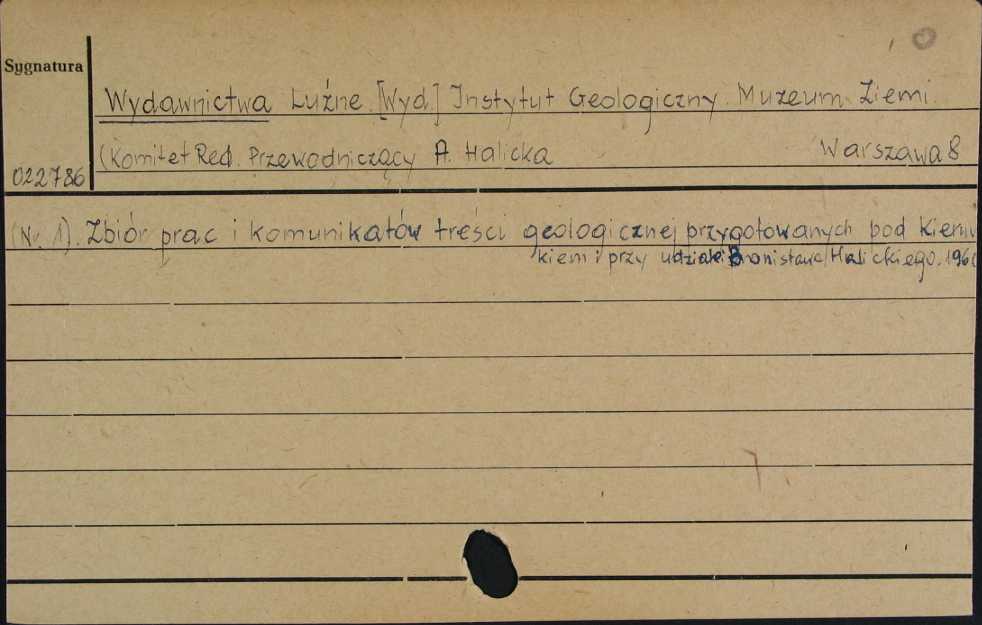 Sygnatura
Wydawnictwa Luźne. [Wyd.] Instytut Geologiczny. Muzeum Ziemi.
(Komitet Red. Przewodniczący A. Halicka Warszawa 8
022786
(Nr 1). Zbiór prac i komunikatów treści geologicznej przygotowanych pod Kierun
kiem i przy udziale Bronisława Halickiego. 196